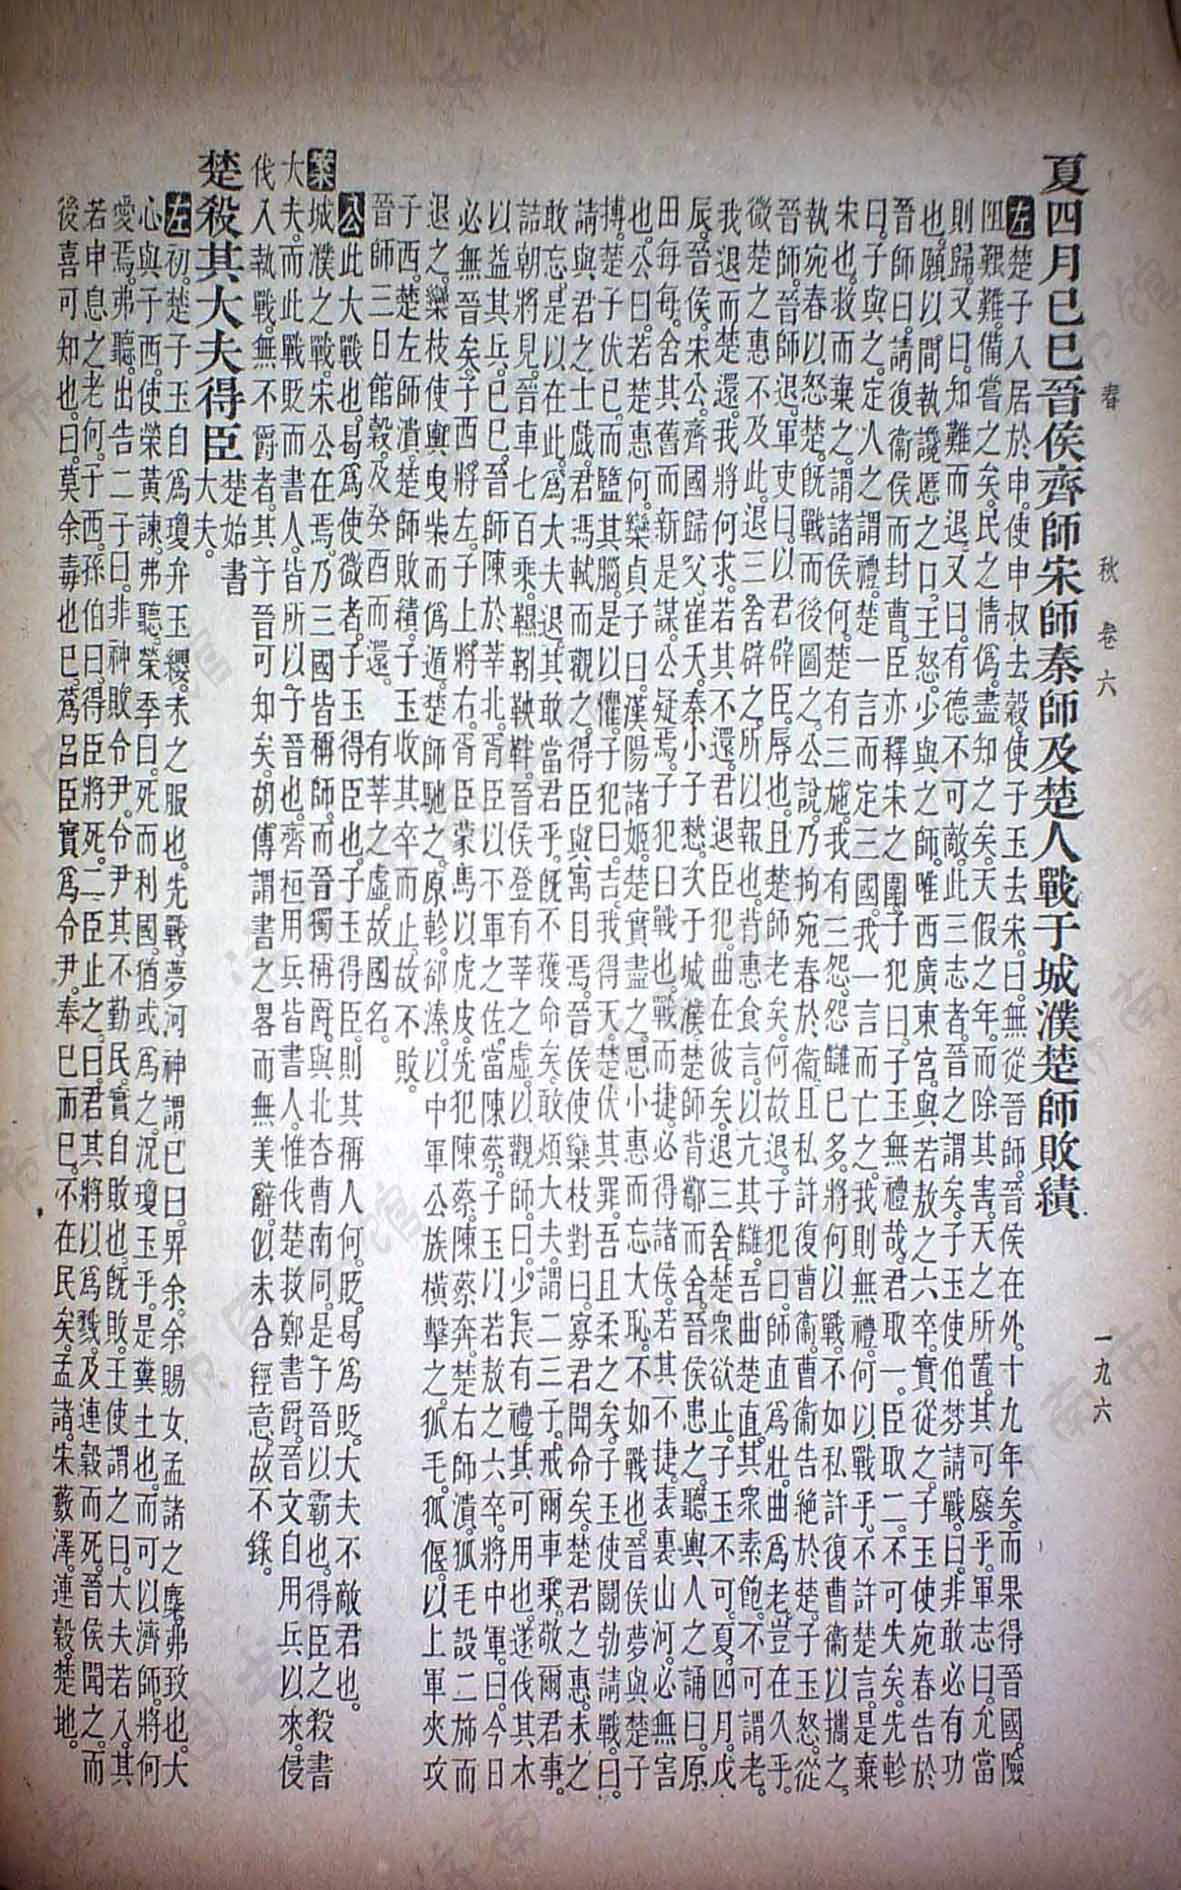 春　秋　卷六　一九六
夏四月己巳晉侯齊師宋師秦師及楚人戰于城濮楚師敗績
左楚子入居於申。使申叔去穀。使子玉去宋。曰。無從晉師。晉侯在外。十九年矣。而果得晉國。險
阻艱難。備嘗之矣。民之情僞。盡知之矣。天假之年。而除其害。天之所置。其可廢乎。軍志曰。允當
則歸。又曰。知難而退。又曰。有德不可敵。此三志者。晉之謂矣。子玉使伯棼請戰。曰。非敢必有功
也。願以間執讒慝之口。王怒。少與之師。唯西廣東宮。與若敖之六卒。實從之。子玉使宛春告於
晉師曰。請復衞侯而封曹。臣亦釋宋之圍。子犯曰。子玉無禮哉。君取一。臣取二。不可失矣。先軫
曰。子與之。定人之謂禮。楚一言而定三國。我一言而亡之。我則無禮。何以戰乎。不許楚言。是棄
宋也。救而棄之。謂諸侯何。楚有三施。我有三怨。怨讎已多。將何以戰。不如私許復曹衞以攜之。
執宛春以怒楚。旣戰而後圖之。公說。乃拘宛春於衞。且私許復曹衞。曹衞告絕於楚。子玉怒。從
晉師。晉師退。軍吏曰。以君辟臣。辱也。且楚師老矣。何故退。子犯曰。師直爲壯。曲爲老。豈在久乎。
微楚之惠不及此。退三舍辟之。所以報也。背惠食言。以亢其讎。吾曲楚直。其衆素飽。不可謂老。
我退而楚還。我將何求。若其不還。君退臣犯。曲在彼矣。退三舍。楚衆欲止。子玉不可。夏。四月。戊
辰。晉侯。宋公。齊國歸父。崔夭。秦小子憗。次于城濮。楚師背酅而舍。晉侯患之。聽輿人之誦曰。原
田每每。舍其舊而新是謀。公疑焉。子犯曰。戰也。戰而捷。必得諸侯。若其不捷。表裏山河。必無害
也。公曰。若楚惠何。欒貞子曰。漢陽諸姬。楚實盡之。思小惠而忘大恥。不如戰也。晉侯夢與楚子
搏。楚子伏已。而盬其腦。是以懼。子犯曰。吉。我得天。楚伏其罪。吾且柔之矣。子玉使鬭勃請戰。曰。
請與君之士戲。君馮軾而觀之。得臣與寓目焉。晉侯使欒枝對曰。寡君聞命矣。楚君之惠。未之
敢忘。是以在此。爲大夫退。其敢當君乎。旣不獲命矣。敢煩大夫。謂二三子。戒爾車乘。敬爾君事。
詰朝將見。晉車七百乘。韅靷鞅靽。晉侯登有莘之虛。以觀師。曰。少長有禮。其可用也。遂伐其木
以益其兵。己巳。晉師陳於莘北。胥臣以下軍之佐。當陳蔡。子玉以若敖之六卒。將中軍。曰今日
必無晉矣。子西將左。子上將右。胥臣蒙馬以虎皮。先犯陳蔡。陳蔡奔。楚右師潰。狐毛設二旆而
退之。欒枝使輿曳柴而爲遁。楚師馳之。原軫。郤溱。以中軍公族橫擊之。狐毛。狐偃。以上軍夾攻
子西。楚左師潰。楚師敗績。子玉收其卒而止。故不敗。
晉師三日館穀。及癸酉而還。　有莘之虛。故國名。
公此大戰也。曷爲使微者。子玉得臣也。子玉得臣。則其稱人何。貶。曷爲貶。大夫不敵君也。
案城濮之戰。宋公在焉。乃三國皆稱師。而晉獨稱爵。與北杏曹南同。是予晉以霸也。得臣之殺書
大夫。而此戰旣而書人。皆所以予晉也。齊桓用兵皆書人。惟伐楚救鄭書爵。晉文自用兵以來。侵
伐入執戰。無不爵者。其予晉可知矣。胡傳謂書之畧而無美辭。似未合經意。故不錄。
楚殺其大夫得臣　楚始書大夫。
左初。楚子玉自爲瓊弁玉纓。未之服也。先戰。夢河神謂已曰。畀余。余賜女孟諸之麋。弗致也。大
心與子西。使榮黃諫。弗聽。榮季曰。死而利國。猶或爲之。況瓊玉乎。是糞土也。而可以濟師。將何
愛焉。弗聽。出告二子曰。非神敗令尹。令尹其不勤民。實自敗也。旣敗。王使謂之曰。大夫若入。其
若申息之老何。子西。孫伯曰。得臣將死。二臣止之。曰。君其將以爲戮。及連穀而死。晉侯聞之。而
後喜可知也。曰。莫余毒也已。蔿呂臣實爲令尹。奉已而已。不在民矣。孟諸。宋藪澤。連穀。楚地。